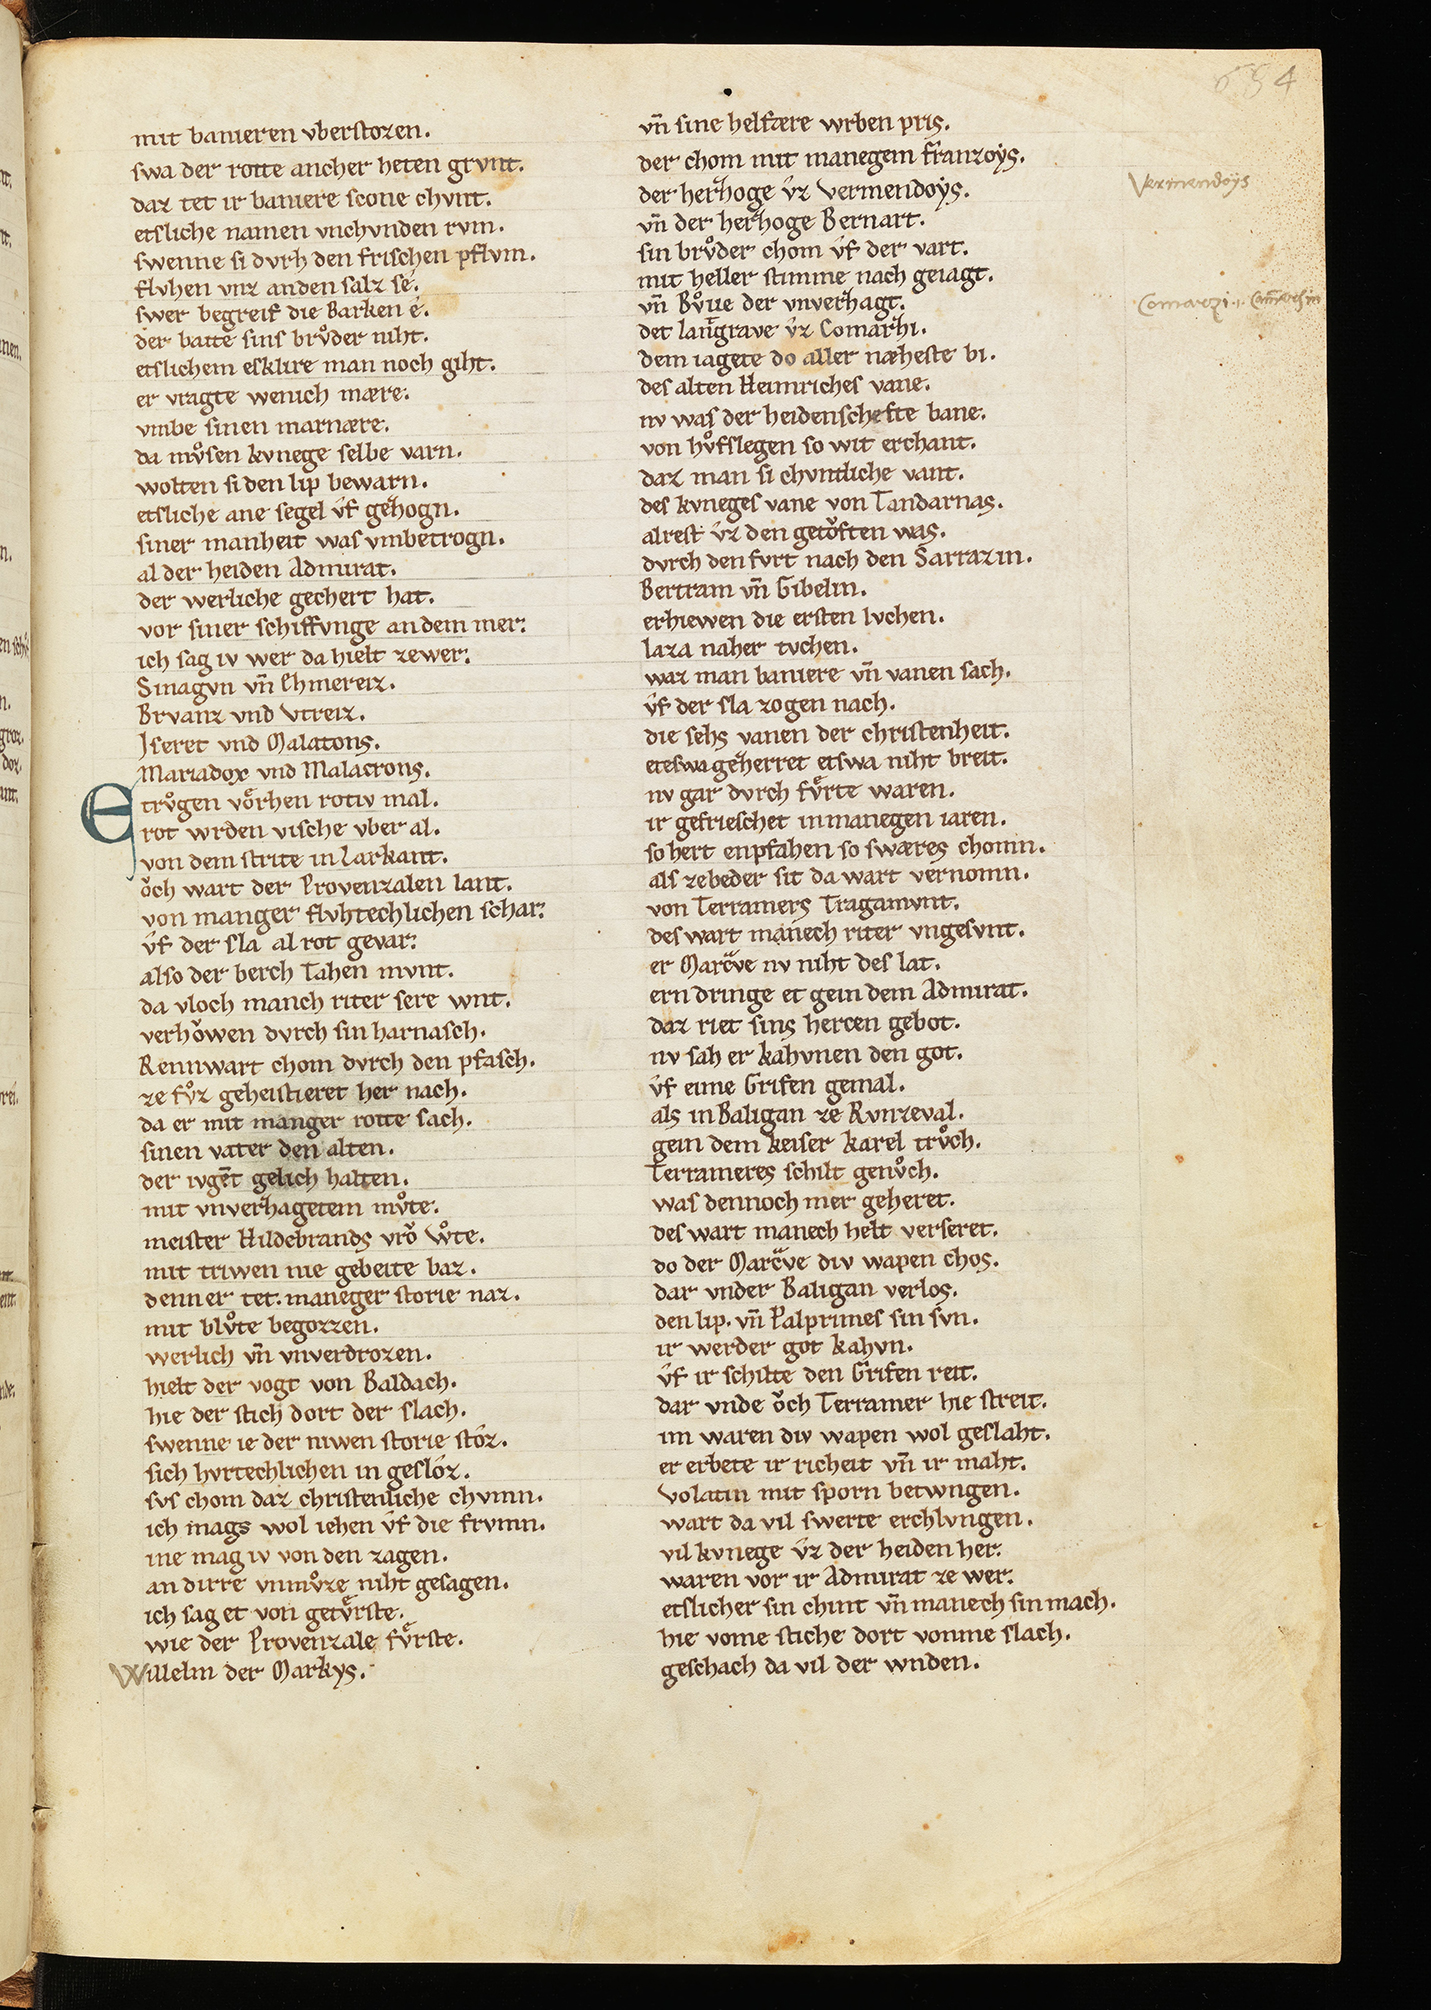 654
mit banieren vberstozen.
swa der rotte ancher heten grvnt.
daz tet ir baniere scone chvnt.
etsliche namen vnchvnden rvm.
swenne si dvrh den frischen pflvm.
flvhen vnz anden salz sé.
swer begreif die Barken é.
der batte sins brůder niht.
etslichem esklire man noch giht.
er vragte wenich mære.
vmbe sinen marnære.
da mv̊sen kvnege selbe varn.
wolten si den lip bewarn.
etsliche ane segel v̂f gezhogn.
siner manheit was vmbetrogn.
al der heiden Admirat.
der werliche gechert hat.
vor siner schiffvnge an dem mer.
ich sag iv wer da hielt zewer.
Sinagvn vn̄ Ehmereiz.
Brvanz vnd Vtreiz.
Iseret vnd Malatons.
Mariadox vnd Malacrons.
E trv̊gen vo̊rhen rotiv mal.
rot wrden vische vber al.
von dem strite in Larkant.
o̊ch wart der Provenzalen lant.
von manger flvhtechlichen schar.
v̂f der sla al rot gevar.
also der berch Tahen mvnt.
da vloch manch riter sere wnt.
verho̊wen dvrch sin harnasch.
Rennwart chom dvrch den pfasch.
ze fv̊z geheistieret her nach.
da er mit manger rotte sach.
sinen vater den alten.
der ivgēt gelich halten.
mit vnverzhagetem mv̊te.
meister Hildebrands vro̊ Vo̊te.
mit triwen nie gebeite baz.
denn er tet. maneger storie naz.
mit blv̊te begozzen.
werlich vn̄ vnverdrozen.
hielt der vogt von Baldach.
hie der stich dort der slach.
swenne ie der niwen storie stoz.
sich hvrtechlichen in gesloz.
svs chom daz christenliche chvmn.
ich mags wol iehen v̂f die frvmn.
ine mag iv von den zagen.
an dirre vnmv̊ze niht gesagen.
ich sag et von getv̊rste.
wie der Provenzale fv̊rste.
Willelm der Markys.
vn̄ sine helfære wrben pris.
der chom mit manegem franzoys.
der herzhoge v̂z Vermendoys.
vn̄ der herzhoge Bernart.
sin brv̊der chom v̂f der vart.
mit heller stimme nach geiagt.
vn̄ Bv̊ue der vnverzhagt.
det langrave v̂z Comarzhi.
dem iagete do aller næheste bi.
des alten Heimriches vane.
nv was der heidenschefte bane.
von hv̊fslegen so wit erchant.
daz man si chvntliche vant.
des kvneges vane von Tandarnas.
alrest v̂z den geto̊ften was.
dvrch den fvrt nach den Sarrazin.
Bertram vn̄ Gibelin.
erhiewen die ersten lvchen.
laza naher tvchen.
waz man baniere vn̄ vanen sach.
v̂f der sla zogen nach.
die sehs vanen der christenheit.
eteswa gezherret etswa niht breit.
nv gar dvrch fv̊rte waren.
ir gefrieschet inmanegen iaren.
so hert enpfahen so swæres chomn.
als zebeder sit da wart vernomn.
von Terramers Tragamvnt.
des wart manech riter vngesvnt.
er Marcve nv niht des lat.
ern dringe et gein dem Admirat.
daz riet sins hercen gebot.
nv sah er kahvnen den got.
v̂f eime Grifen gemal.
als in Baligan ze Rvnzeval.
gein dem keiser karel trv̊ch.
Terrameres schilt genv̊ch.
was dennoch mer geheret.
des wart manech helt verseret.
do der Marcve div wapen chos.
dar vnder Baligan verlos.
den lip. vn̄ Palprimes sin svn.
ir werder got kahvn.
v̂f ir schilte den Grifen reit.
dar vnde o̊ch Terramer hie streit.
im waren div wapen wol geslaht.
er erbete ir richeit vn̄ ir maht.
Volatin mit sporn betwngen.
wart da vil swerte erchlvngen.
vil kvnege v̂z der heiden her.
waren vor ir Admirat ze wer.
etslicher sin chint vn̄ manech sin mach.
hie vome stiche dort vonme slach.
geschach da vil der wnden.
Vermendoÿs
Comarzi